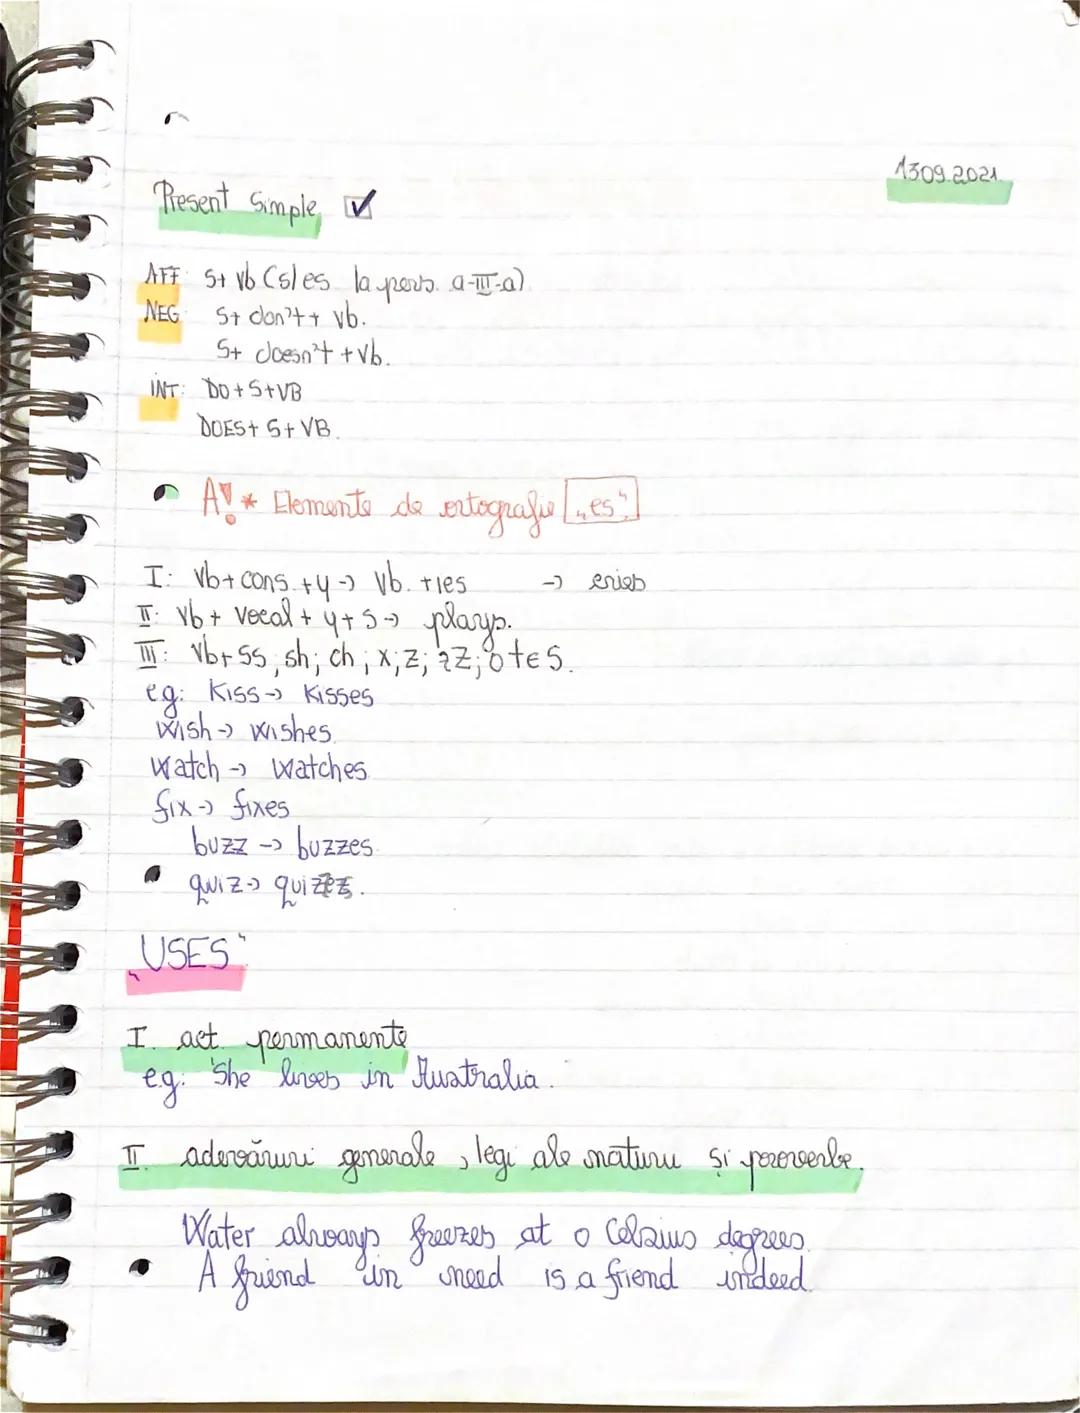 1309.2021
Present Simple
AFF: S+ Vb (s/es la pers. a-III-a)
NEG: S+ don't+ Vb.
S+ doesn't + Vb.
INT: DO + S + VB
DOES + S + VB.
A! * Elemente de ortografie „es"
I: Vb + cons. + y -> Vb. + ies -> cries
II: Vb + vocal + y + s -> plays.
III: Vb + ss; sh; ch; x; z; zz; o + es.
eg: Kiss -> Kisses
Wish -> Wishes
Watch -> Watches
fix -> fixes
buzz -> buzzes
quiz ->
„USES"
I. act. permanente
e.g: She lives in Australia.
II. adevăruri generale, legi ale naturii și proverbe.
Water always freezes at 0 Celsius degrees.
A friend in need is a friend indeed.